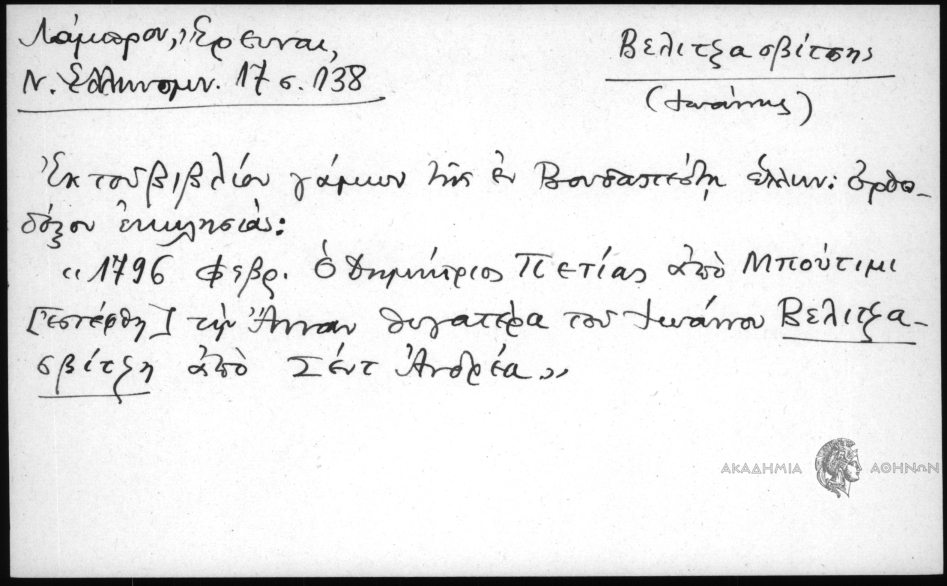 Λάμπρου, Ἔρευναι,
Ν. Ἑλληνομν. 17 σ. 138
Βελιτζασβίτσης
(Ἰωάννης)
Ἐκ τοῦ βιβλίου γάμων τῆς ἐν Βουδαπέστῃ ἑλλην. ὀρθο-
δόξου ἐκκλησίας:
«1796 Φεβρ. Ὁ Δημήτριος Πετίας ἀπὸ Μπούτιμι
[ἐστέφθη] τὴν Ἄνναν θυγατέρα τοῦ Ἰωάννου Βελιτζα-
σβίτζη ἀπὸ Σέντ Ἀνδρέα»
ΑΚΑΔΗΜΙΑ ΑΘΗΝΩΝ